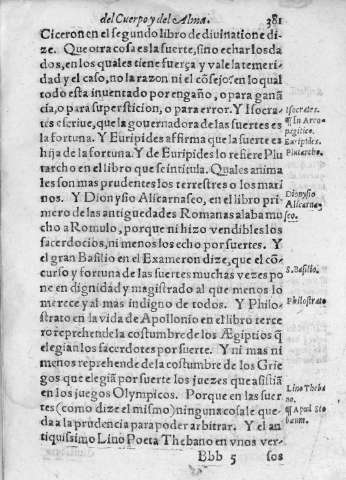 del Cuerpo y del Alma. 381
Ciceron en el segundo libro de diuinatione di-
ze. Que otra cosa es la suerte, sino echar los da
dos, en los quales tiene fuerça y vale la temeri-
dad y el caso, no la razon ni el cõsejo? en lo qual
todo esta inuentado por engaño, o para ganã
cia, o para supersticion, o para error. Y Isocra-
tes escriue, que la gouernadora de las suertes es
la fortuna. Y Euripides affirma que la suerte es
hija de la fortuna. Y de Euripides lo refiere Plu
tarcho en el libro que se intitula. Quales anima
les son mas prudentes los terrestres o los mari
nos. Y Dionysio Alicarnaseo, en el libro pri
mero de las antiguedades Romanas alaba mu
cho a Romulo, porque ni hizo vendibles los
sacerdocios, ni menos los echo por suertes. Y
el gran Basilio en el Exameron dize, que el cõ-
curso y fortuna de las suertes muchas vezes po
ne en dignidad y magistrado al que menos lo
merece y al mas indigno de todos. Y Philo-
strato en la vida de Apollonio en el libro terce
ro reprehende la costumbre de los Ægiptios q̃
elegian los sacerdotes por suerte. Y ni mas ni
menos reprehende de la costumbre de los Grie
gos que elegiã por suerte los juezes que asistiã
en los juegos Olympicos. Porque en las suer-
tes (como dize el mismo) ninguna cosa le que-
da a la prudencia para poder arbitrar. Y el an
tiquissimo Lino Poeta Thebano en vnos ver-
Bbb 5 sos
Isocrates.
¶ In Areo
pagitico.
Euripides.
Plutarcho.
Dionysio
Alicarna
seo.
S. Basilio.
Philostrato
Lino Theba
no.
¶ Apud Sto
bæum.